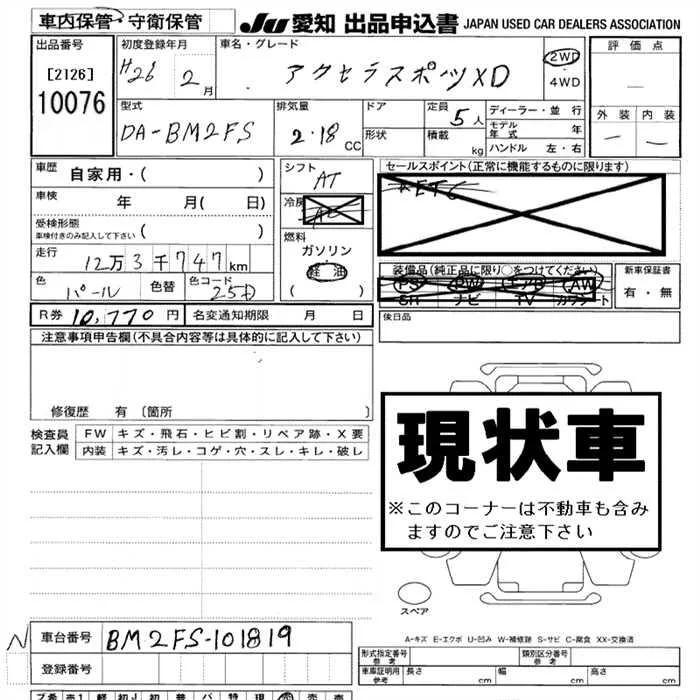 車内保管・守衛保管 JU愛知 出品申込書 JAPAN USED CAR DEALERS ASSOCIATION
出品番号
[2126]
10076
初度登録年月
H26 2月
車名・グレード
アクセラスポーツXD
2WD
4WD
評価点
—
外装 内装
— —
型式
DA-BM2FS
排気量
2.18CC
ドア
形状
定員 5人
積載 kg
ディーラー・並行
モデル年式 年
ハンドル 左・右
車歴 自家用・( )
車検 年 月( 日)
受検形態
車検付きのみ記入して下さい ( )
走行 12万3千747km
色 パール 色替 色コード 25D
シフト AT
冷房
燃料
ガソリン
軽油
( )
セールスポイント(正常に機能するものに限ります)
装備品(純正品に限り○をつけてください)
PS PW エアB AW
SR ナビ TV カワシート
新車保証書
有・無
R券 10,770円 名変通知期限 月 日
後日品
注意事項申告欄(不具合内容等は具体的に記入して下さい)
修復歴 有〔箇所 〕
検査員記入欄
FW キズ・飛石・ヒビ割・リペア跡・X要
内装 キズ・汚レ・コゲ・穴・スレ・キレ・破レ
現状車
※このコーナーは不動車も含み
ますのでご注意下さい
スペア
A-キズ E-エクボ U-凹み W-補修跡 S-サビ C-腐食 XX-交換済
N
車台番号 BM2FS-101819
登録番号
形式指定番号 参考
類別区分番号 参考
車庫証明用 参考 長さ cm 幅 cm 高さ cm